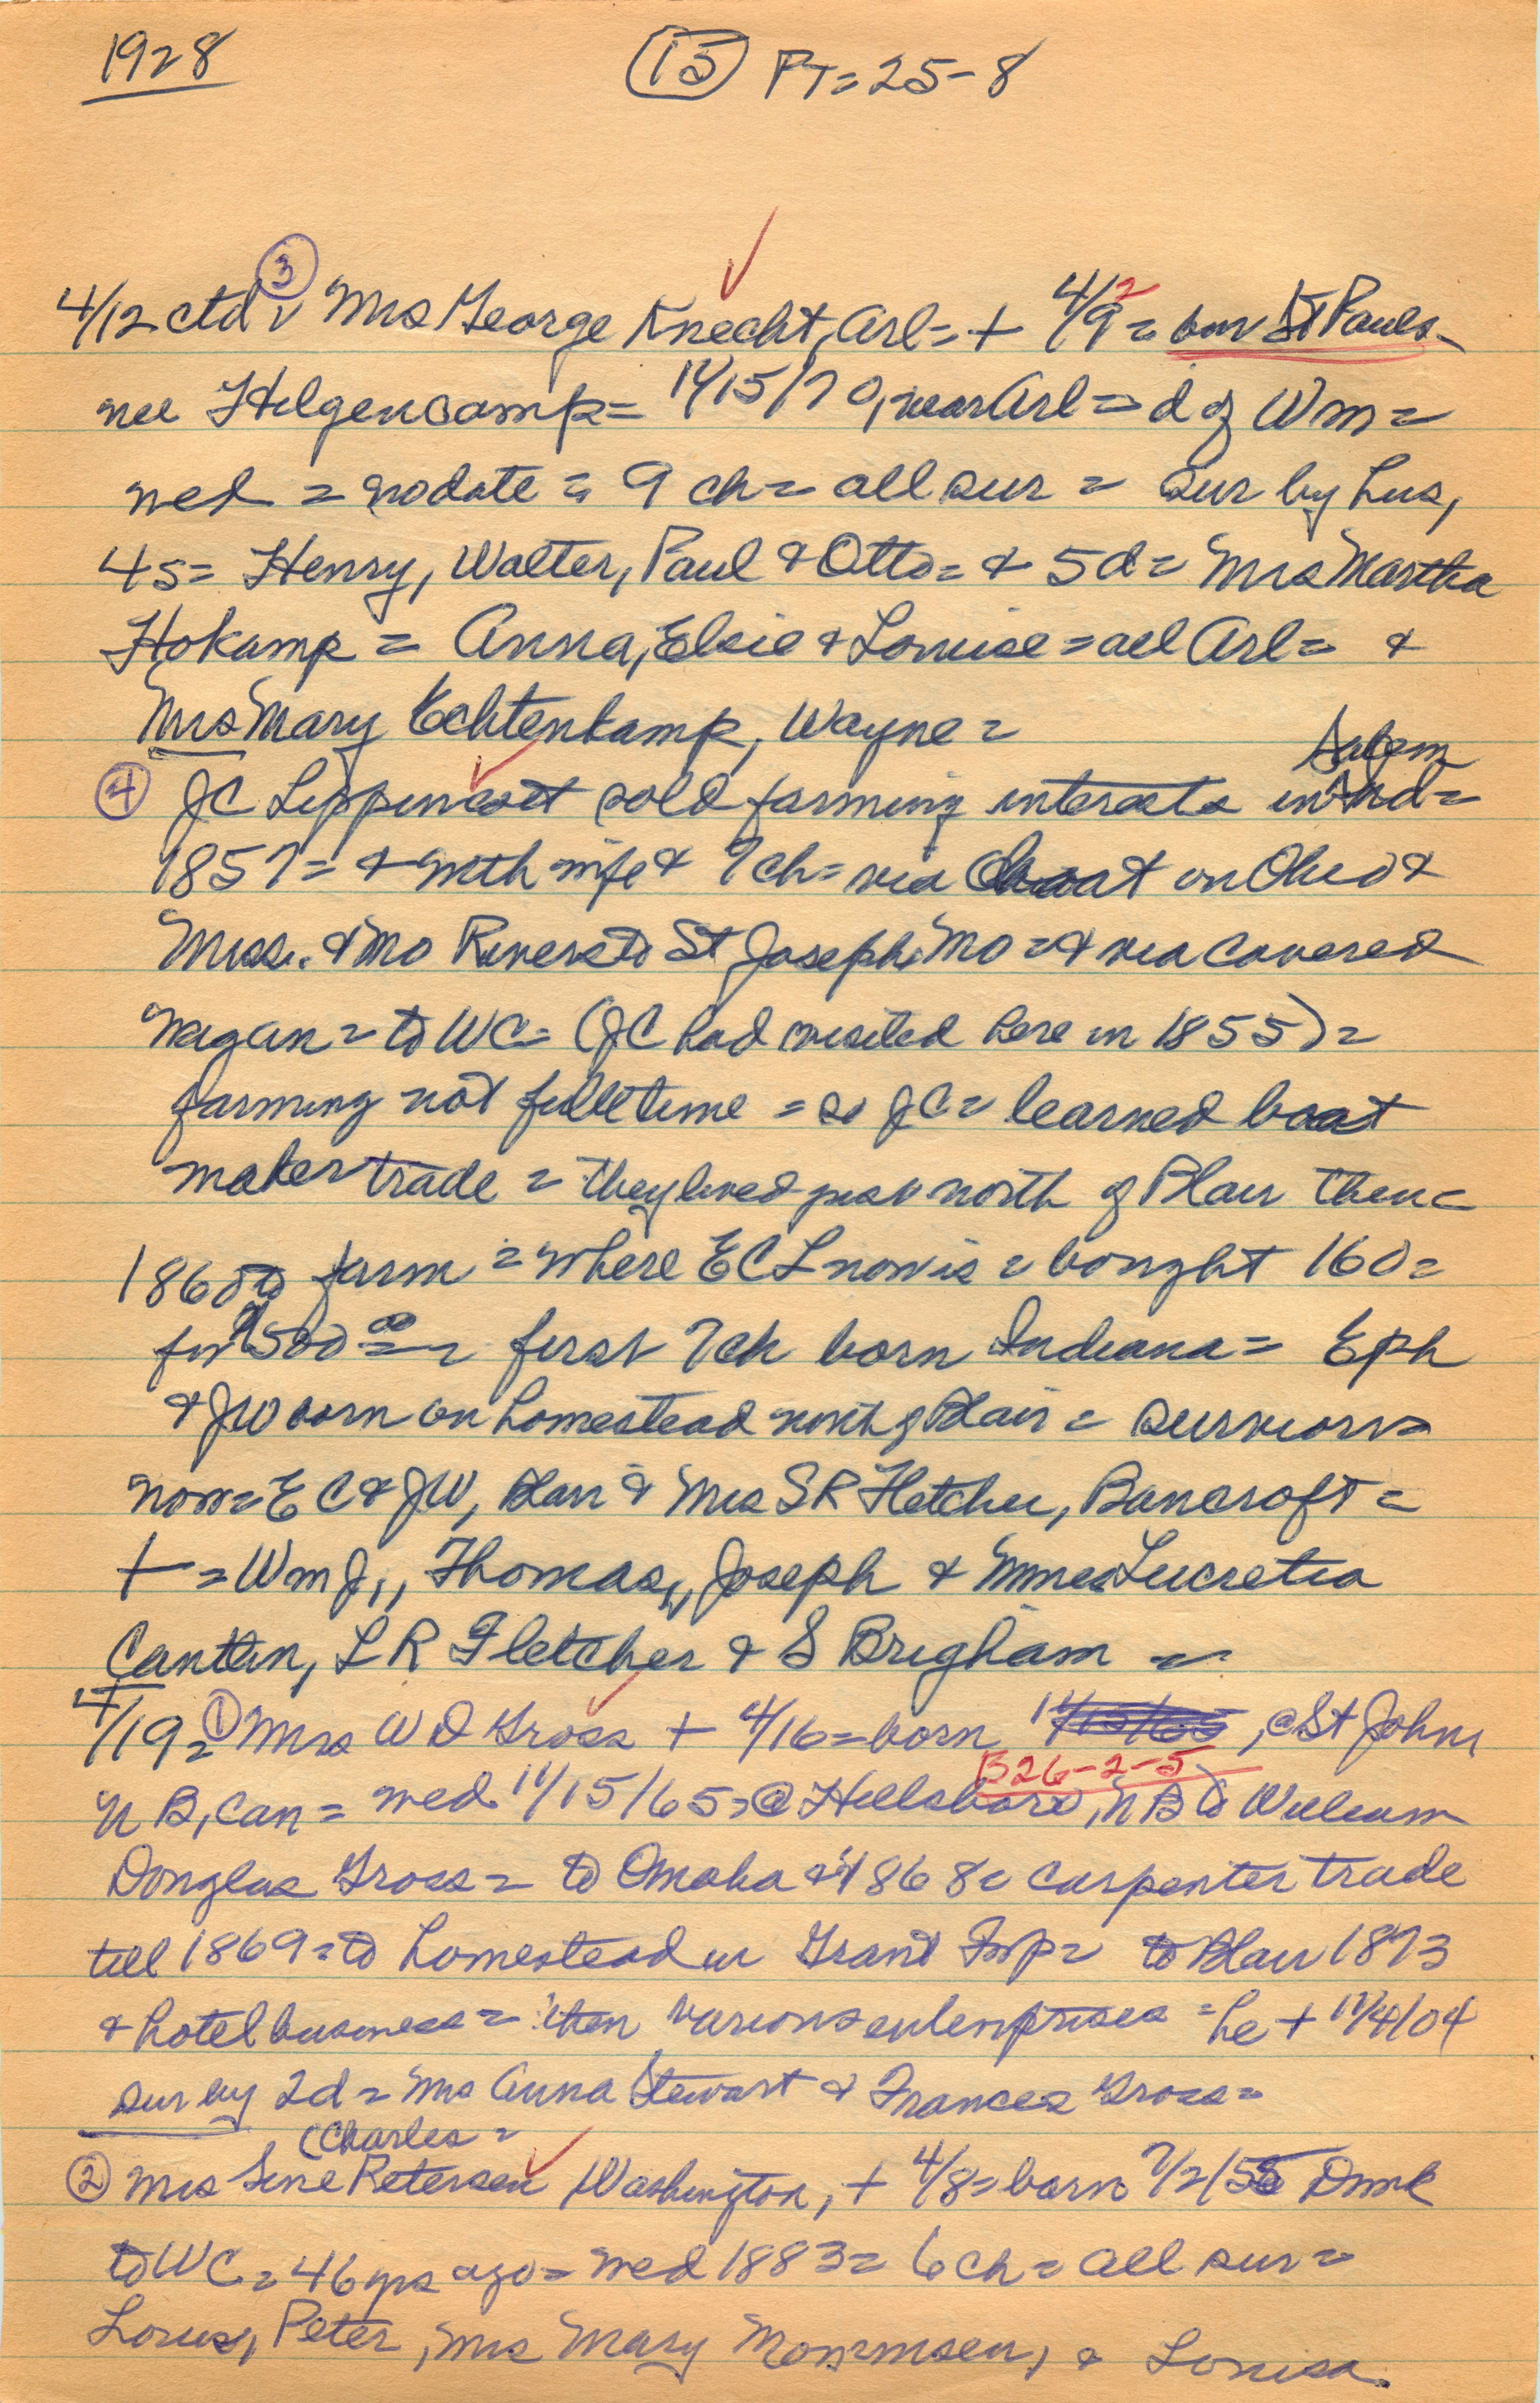 1928 (15) PT=25-8
③
4/12 ctd Mrs George Knecht, Arl=+ 4/9 2 = bur St Pauls-
nee Hilgencamp= 11/15/70, near Arl= d of Wm=
wed = no date = 9 ch= all sur = sur by hus,
4s= Henry, Walter, Paul & Otto= & 5d= Mrs Martha
Hokamp = Anna, Elsie & Louise = all Arl= &
Mrs Mary Echtenkamp, Wayne=
Salem
④ JC Lippincott sold farming interests in Ind=
1857= & with wife & 7ch= via boat on Ohio &
Miss. & Mo Rivers to St Joseph, Mo = & via covered
wagon= to WC= (JC had visited here in 1855)=
farming not full time = so JC= learned boat
maker trade = they lived just north of Blair then=
1860 to farm = where ECL now is = bought 160=
for $500 00 = first 7ch born Indiana= Eph
& JW born on homestead north of Blair = survivors
now= EC & JW, Blair & Mrs SR Fletcher, Bancroft=
+ = Wm J,, Thomas,, Joseph & Mmes Lucretia
Cantlin, LR Fletcher & S Brigham =
4/19= ① Mrs WD Gross + 4/16= born 11/15/65, @ St John,
B26-2-5
NB, Can= wed 11/15/65= @ Hillsboro, NB to William
Douglas Gross= to Omaha 1868= carpenter trade
till 1869= to homestead in Grant Twp= to Blair 1873
& hotel business= then various enterprises = he + 11/4/04
sur by 2d= Mrs Anna Stewart & Frances Gross=
(Charles=
② Mrs Sine Petersen Washington, + 4/8= born 7/2/55 Dmk
to WC= 46 yrs ago= wed 1883= 6ch= all sur=
Louis, Peter, Mrs Mary Mommsen, & Louisa.